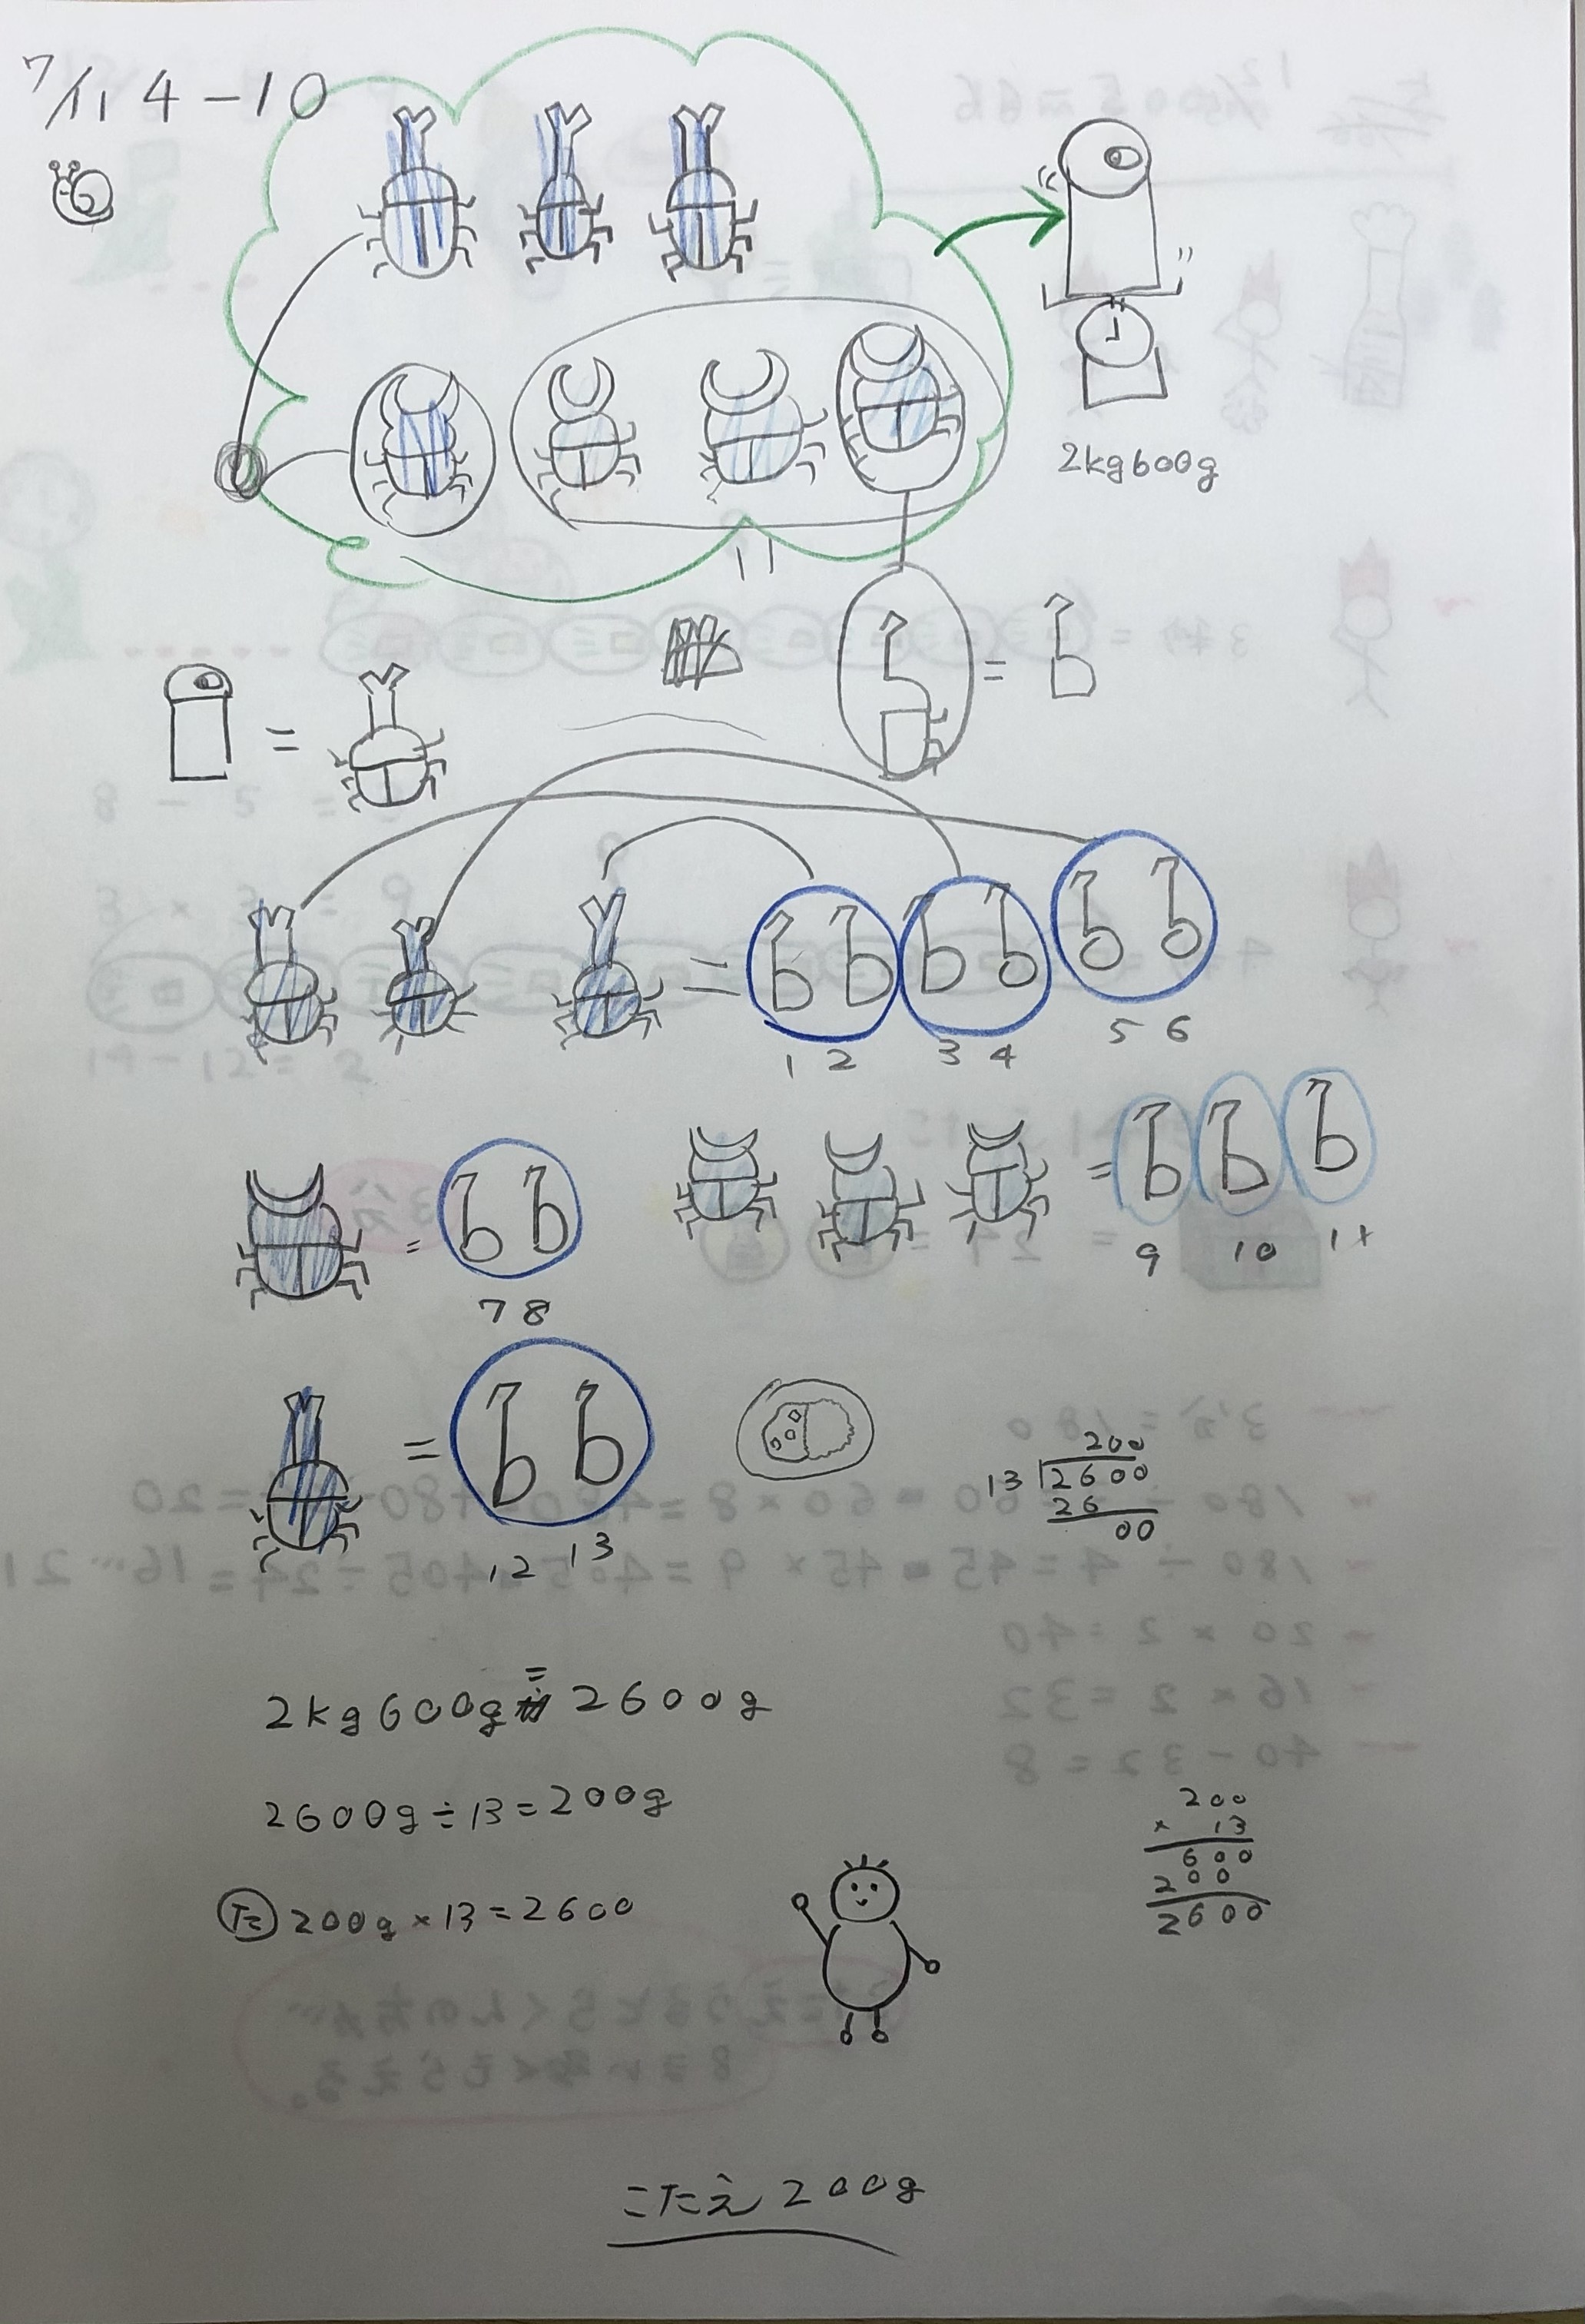 7/11 4-10
2kg600g
=
=
=
1 2 3 4 5 6
=
=
7 8
9 10 11
=
12 13
200
13)2600
26
00
2kg600g = 2600g
2600g÷13=200g
た 200g×13=2600
200
× 13
600
200
2600
こたえ 200g